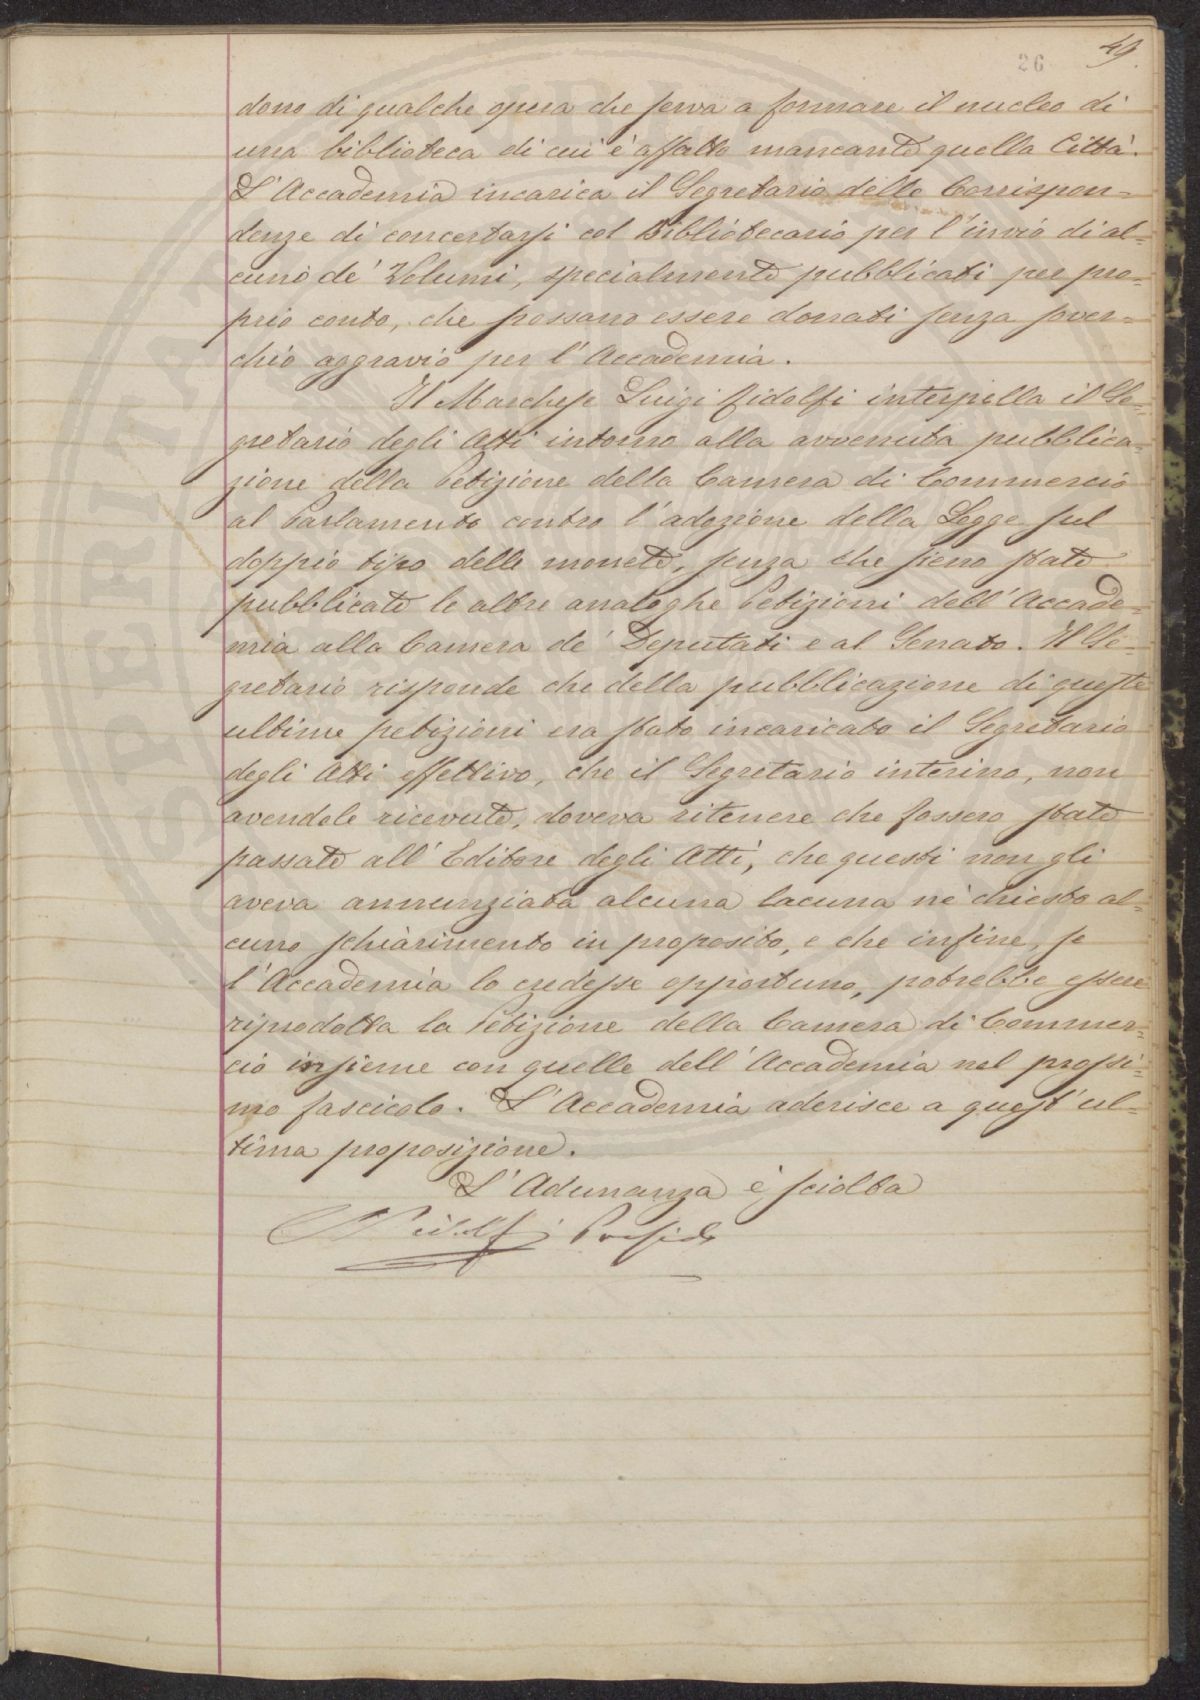 26
49.
dono di qualche opera che serva a formare il nucleo di
una biblioteca di cui è affatto mancante quella Città.
L'Accademia incarica il Segretario delle Corrispon=
denze di concertarsi col Bibliotecario per l'invio di al=
cuno de' Volumi, specialmente pubblicati per pro=
prio conto, che possano essere donati senza sover=
chio aggravio per l'Accademia.
Il Marchese Luigi Ridolfi interpella il Se=
gretario degli Atti intorno alla avvenuta pubblica=
zione della Petizione della Camera di Commercio
al Parlamento contro l'adozione della Legge sul
doppio tipo delle monete, senza che sieno state
pubblicate le altre analoghe Petizioni dell'Accade=
mia alla Camera de' Deputati e al Senato. Il Se=
gretario risponde che della pubblicazione di queste
ultime petizioni era stato incaricato il Segretario
degli Atti effettivo, che il Segretario interino, non
avendole ricevute, doveva ritenere che fossero state
passate all'Editore degli Atti, che questi non gli
aveva annunziata alcuna lacuna nè chiesto al=
cuno schiarimento in proposito, e che infine, se
l'Accademia lo credesse opportuno, potrebbe essere
riprodotta la Petizione della Camera di Commer=
cio insieme con quelle dell'Accademia nel prossi=
mo fascicolo. L'Accademia aderisce a quest'ul=
tima proposizione.
L'Adunanza è sciolta
Ridolfi Preside